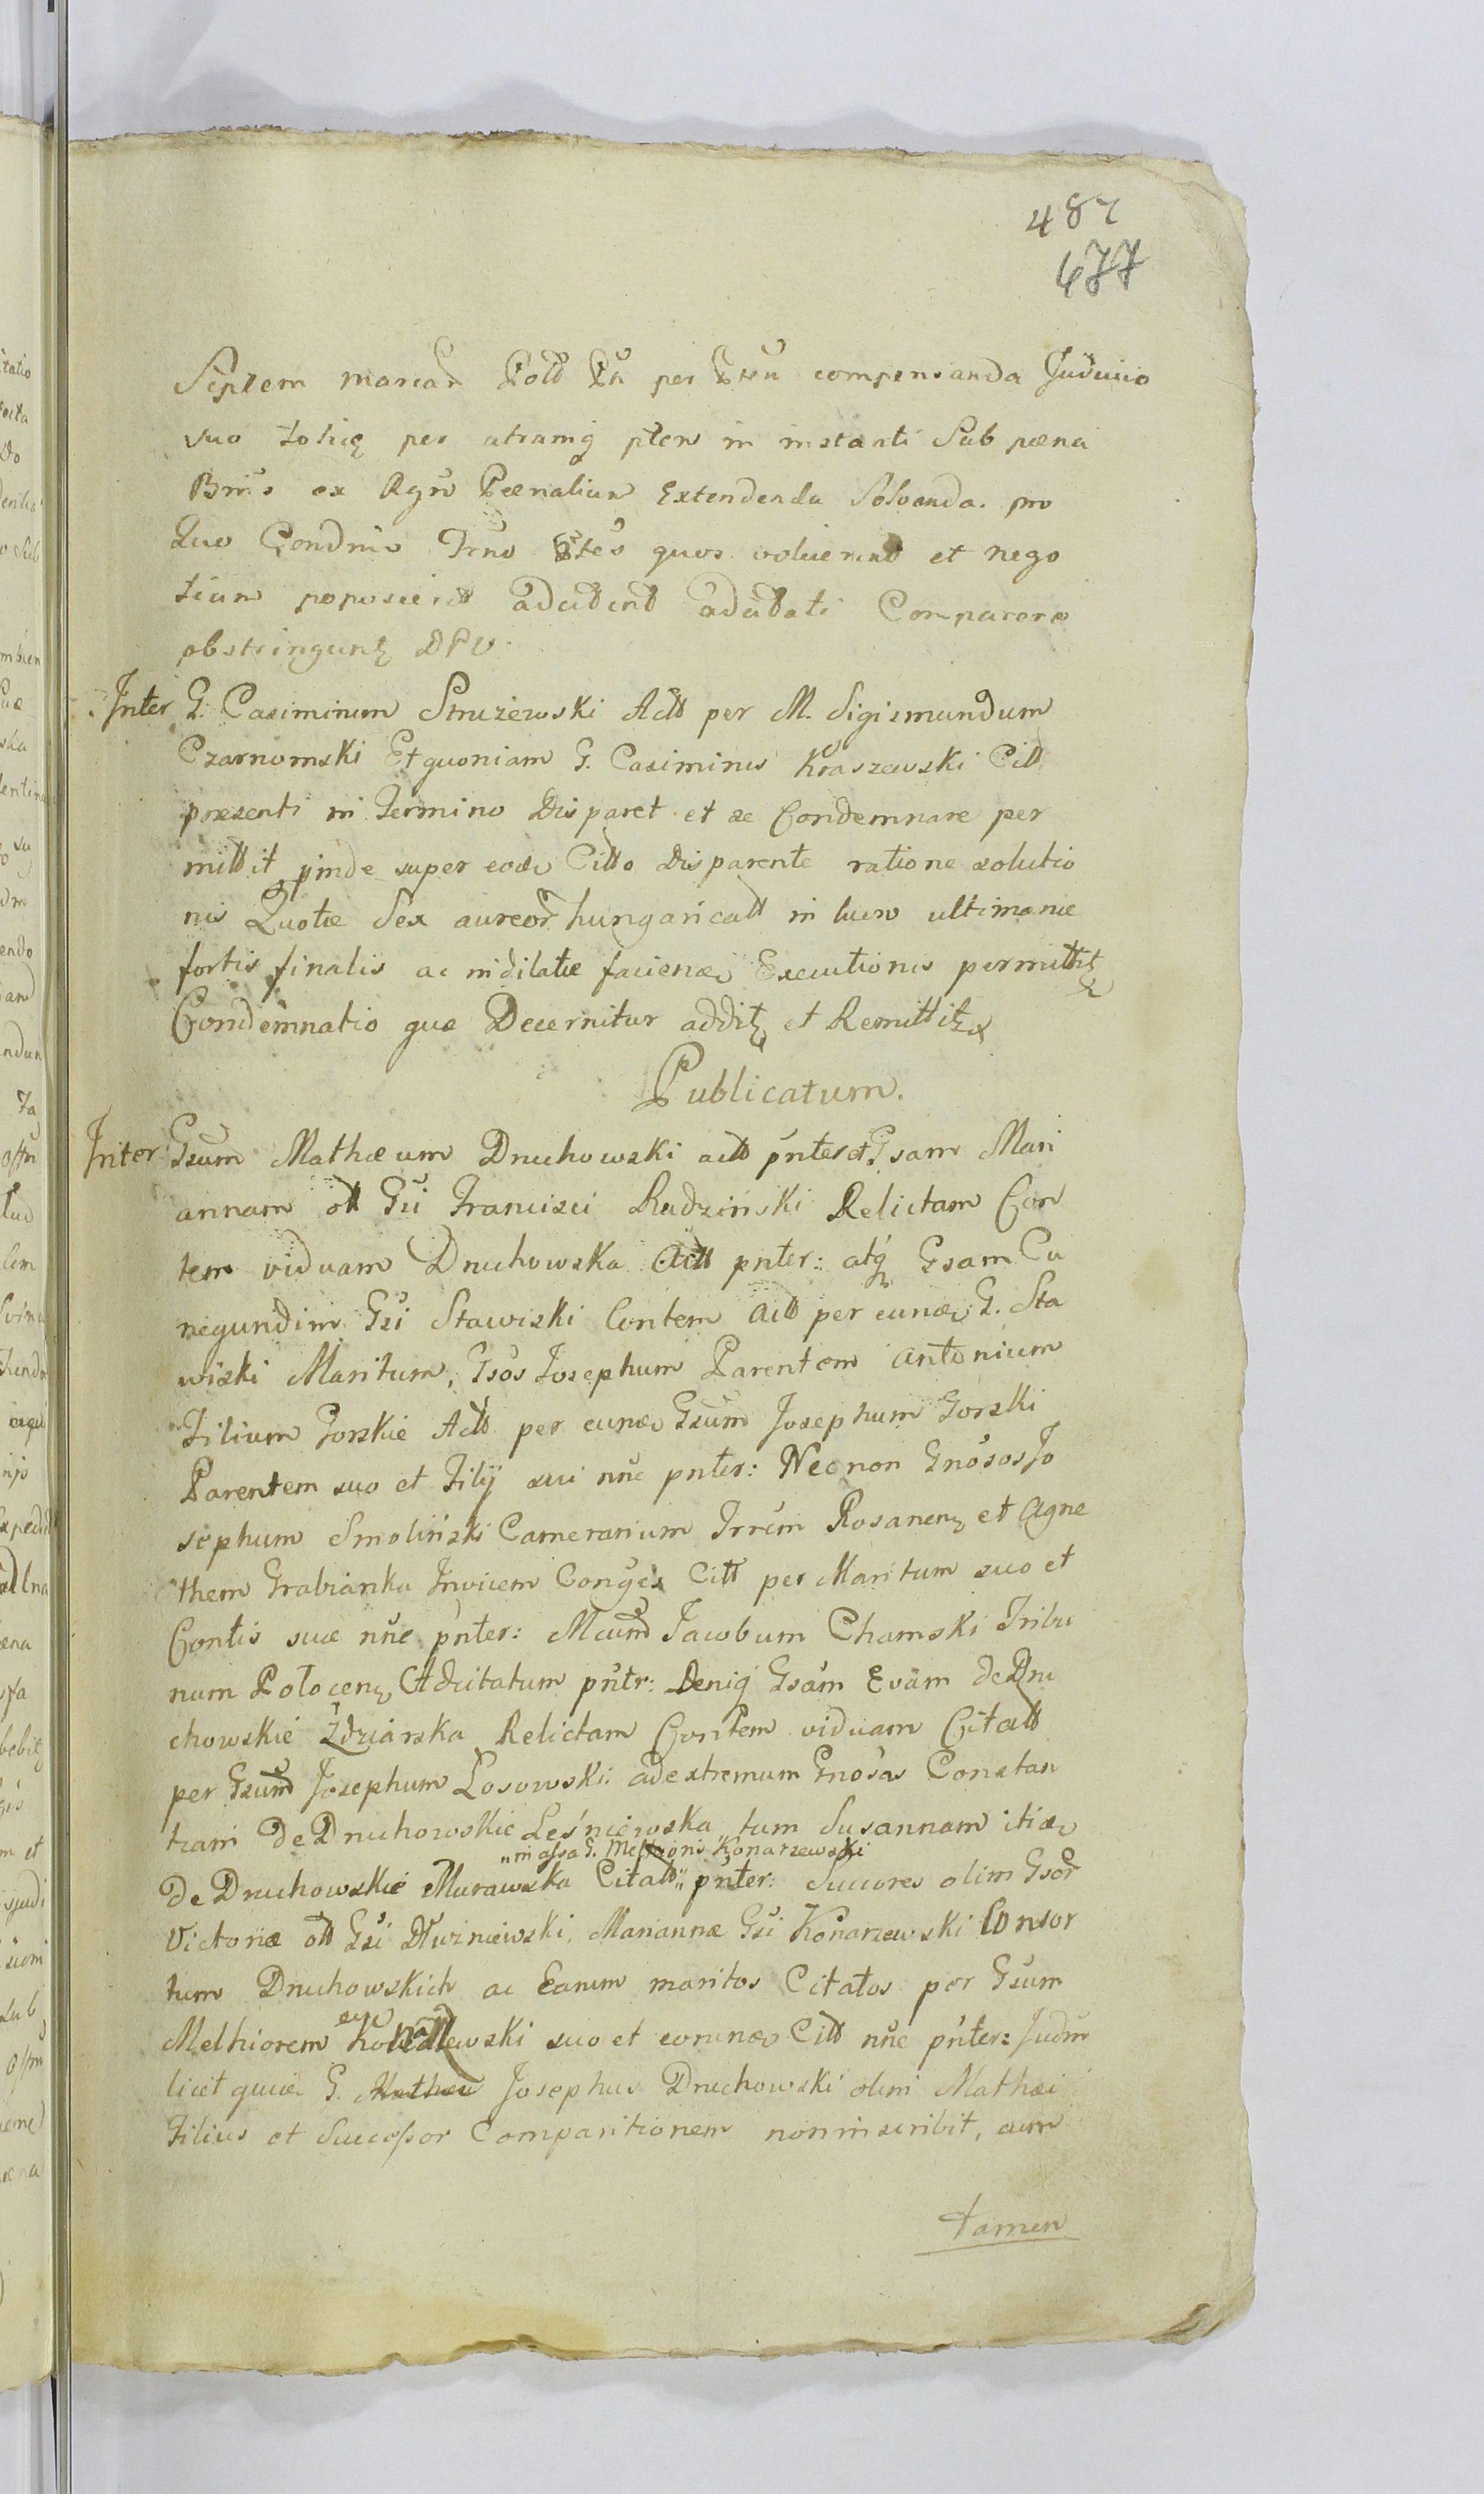 487
477
Septem marcar Polo per compensanda Judicio
suo toties per utramq pten in instanti Sub pæna
Bnis ex Rgro Pænalium Extendenda Solvenda. pro
Quo Condnis Trno Ptes quos voluerint et nego
tium poposcerit adcitent adcitati Comparere
obstringunt DPV.
Inter G. Casimirum Struzewski Actt per M. Sigismundum
Czarnomski Et quoniam G. Casimirus Kraszewski Citt
præsenti in Termino Disparet et se Condemnare per
mittit proinde super eodem Citto Disparente ratione solutio
nis Quotæ Sex aureor hungaricatt in lucro ultimariæ
fortis finalis ac indilatæ faciendæ Executionis permittit
Condemnatio quæ Decernitur addit et Remittit
Publicatum.
Inter Gsum Mathæum Druchowski actt pnter et Gsam Mari
annam ott Gsi Francisci Rudziński Relictam Con
tem viduam Druchowska Actt pnter: atq Gsam Cu
negundim Gsi Stawiski Contem Actt per eund G. Sta
wiski Maritum, Gsos Josephum Parentem Antonium
Filium Gorskie Actt per eund Gsum Josephum Gorski
Parentem suo et Filij sui nñe pnter: Necnon Gnosos Jo
sephum Smoliński Camerarium Trrem Rosanen et Agne
them Grabianka Invicem Conges Citt per Maritum suo et
Contis suæ nñe pnter: Mcum Jacobum Chamski Tribu
num Polocen Adcitatum pntr: Deniq Gsam Evam de Dru
chowskie Zdziarska Relictam Contem viduam Citatt
per Gsum Josephum Losowski. ad extremum Gnosas Constan
tiam De Druchowskie Leśniewska tum Susannam itid
„in assa G. Melhioris Konarzewski
De Druchowskie Murawska Citatt„ pnter: Succores olim Gsor
Victoriæ ott Gsi Dłużniewski, Mariannæ Gsi Konarzewski Consor
tum Druchowskich ac Earum maritos Citatos per Gsum
Melhiorem Konarzewski suo et eorund Citt nñe pnter: Judm
licet quid G. Josephus Druchowski olim Mathæi
Filius et Successor Comparitionem non inscribit, cum
tamen